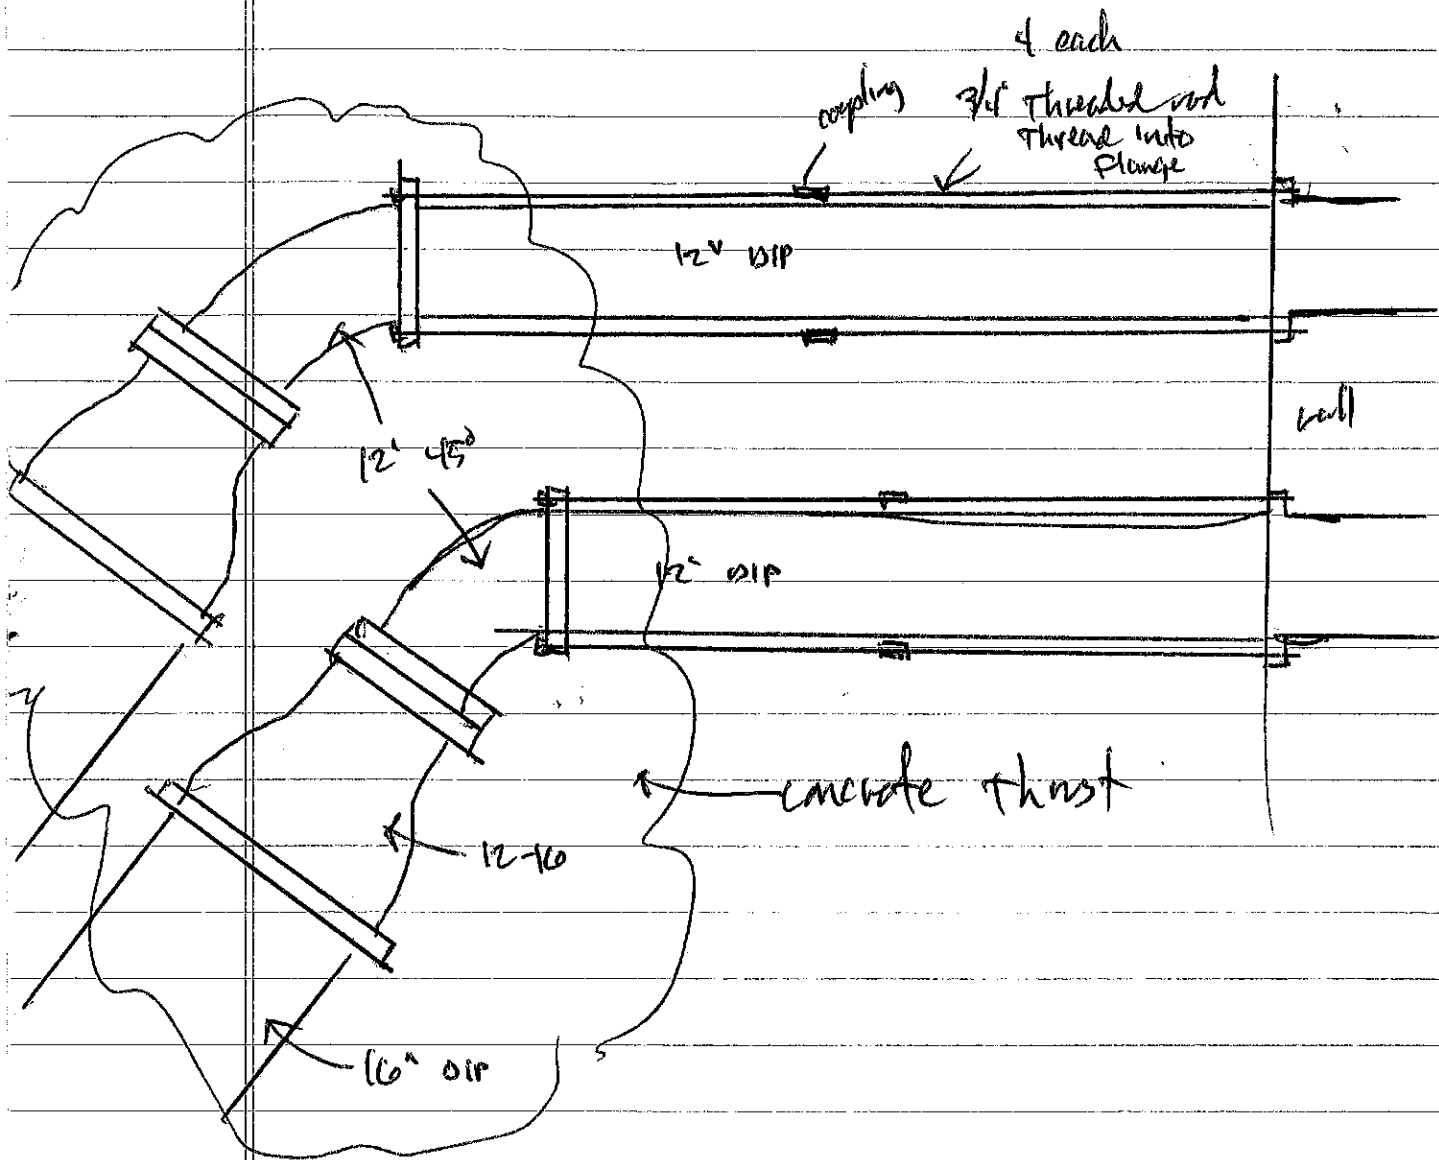 4 each
coupling
3/4" Threaded rod
Thread into
Flange
12" DIP
wall
12" 45°
12" DIP
concrete thrust
12-16
16" DIP